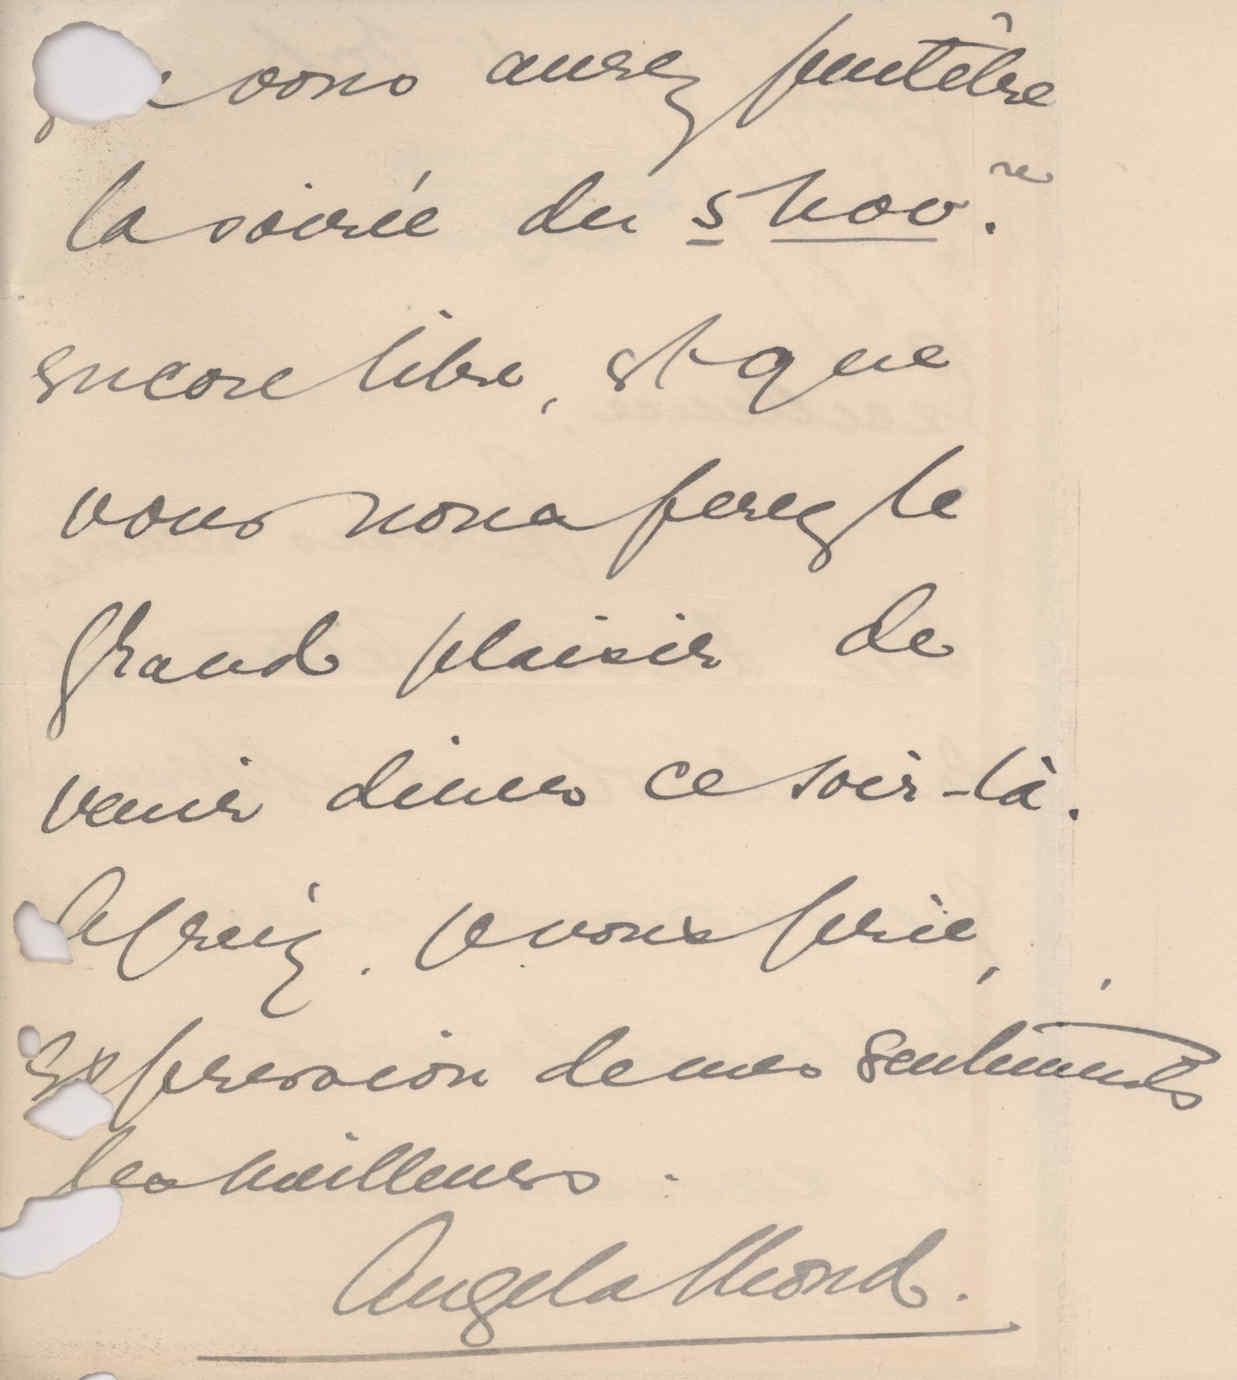 que vous aurez peutêtre
la soirée du 5 Nov.re
encore libre, et que
vous nous ferez le
grand plaisir de
venir diner ce soir-là.
Agréez, je vous prie,
expression de mes sentiments
les meilleurs.
Angela Mond.